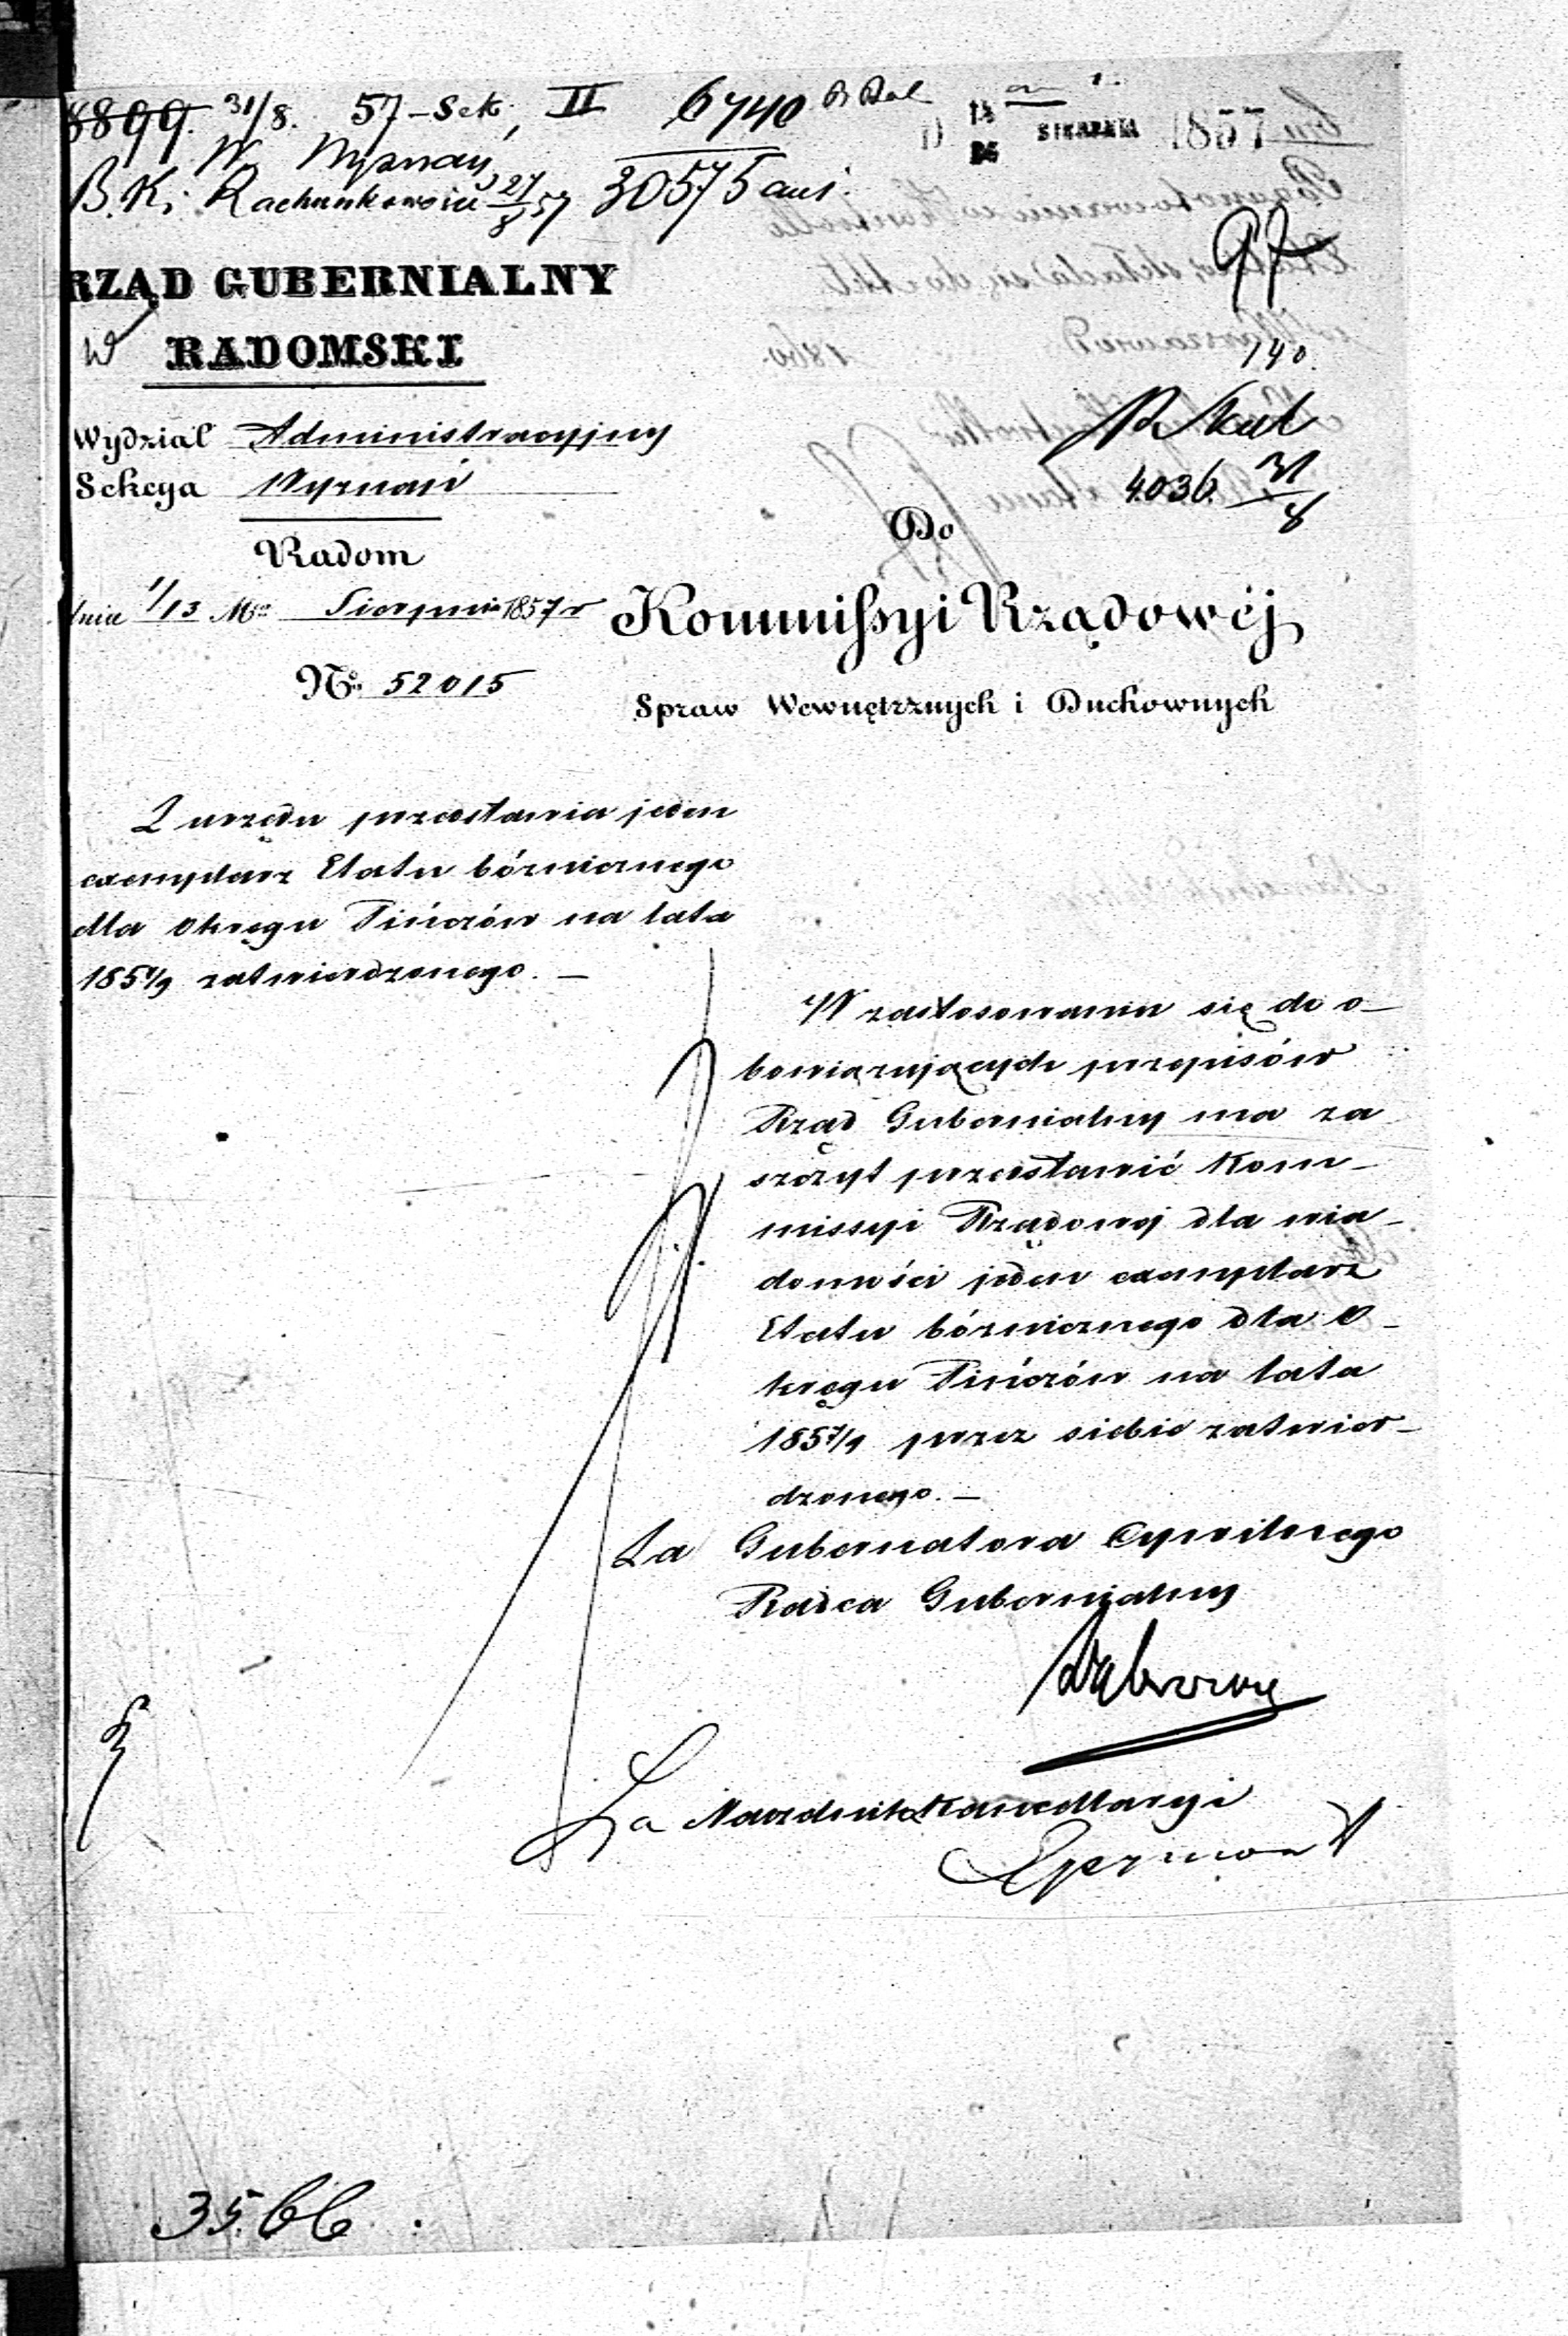 8899. 31/8. 57 – Sek. II 6740
W. Wyznań
B. K. Rachunkowości 27/8 57 30575
14
26 SIERPNIA 1857
97
RZĄD GUBERNIALNY
W RADOMSKI
140.
Wydział Administracyjny
Sekcya Wyznań
4036. 31/8
Do
Radom
dnia 1/13 Mca Sierpnia 1857 r
Kommissyi Rządowéj
No. 52015
Spraw Wewnętrznych i Duchownych
Z urzędu przedstawia jeden
exemplarz Etatu bóżnicznego
dla Okręgu Pińczów na lata
1857/9 zatwierdzonego. —
W zastosowaniu się do o–
bowiązujących przepisów
Rząd Gubernialny ma za
szczyt przedstawić Kom–
missyi Rządowej dla wia–
domości jeden exemplarz
Etatu bóżnicznego dla O–
kręgu Pińczów na lata
1857/9 przez siebie zatwier–
dzonego. —
Za Gubernatora Cywilnego
Radca Gubernialny
Za Naczelnika Kancellaryi
35.66.